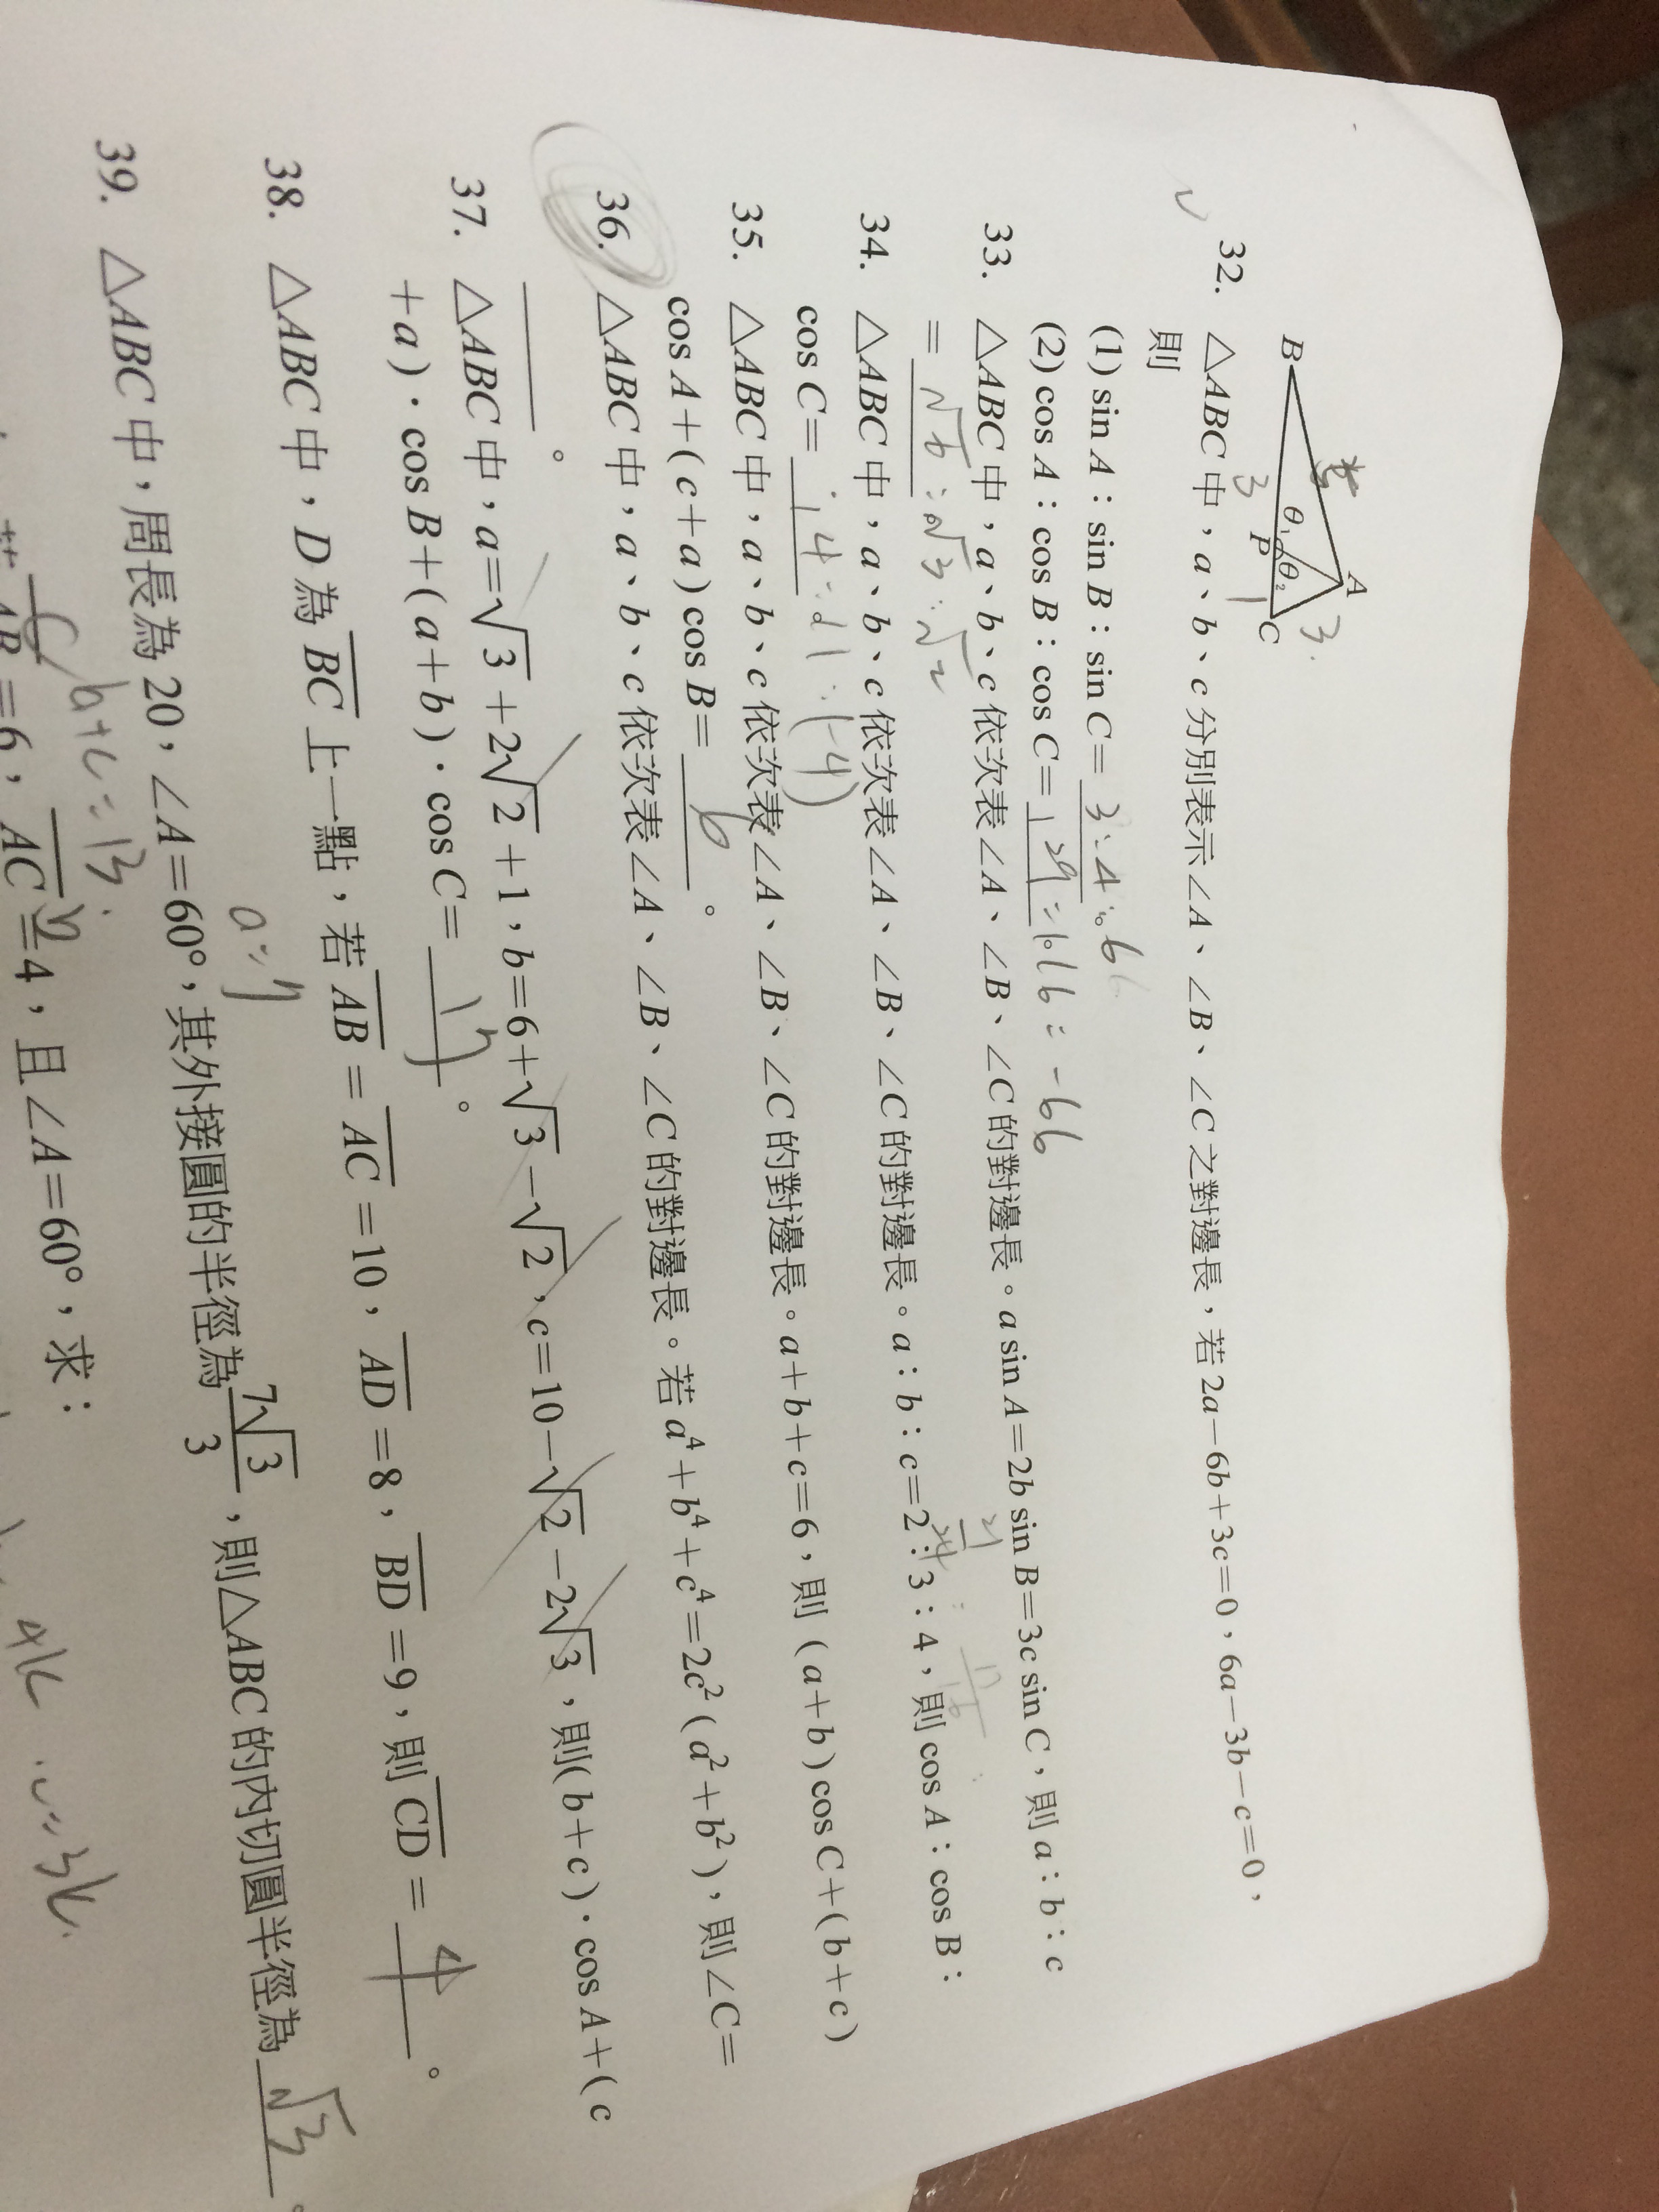 B
A
C
P
θ₁
θ₂
3
1
3
32. △ABC中，a、b、c分別表示∠A、∠B、∠C之對邊長，若2a－6b＋3c＝0，6a－3b－c＝0，
則
(1) sin A：sin B：sin C＝ 3:4:6
(2) cos A：cos B：cos C＝
33. △ABC中，a、b、c依次表∠A、∠B、∠C的對邊長。a sin A＝2b sin B＝3c sin C，則a：b：c
＝ √6:√3:√2
34. △ABC中，a、b、c依次表∠A、∠B、∠C的對邊長。a：b：c＝2：3：4，則cos A：cos B：
cos C＝ 14:11:(-4)
35. △ABC中，a、b、c依次表∠A、∠B、∠C的對邊長。a＋b＋c＝6，則（a＋b）cos C＋（b＋c）
cos A＋（c＋a）cos B＝ 6 。
36. △ABC中，a、b、c依次表∠A、∠B、∠C的對邊長。若a⁴＋b⁴＋c⁴＝2c²（a²＋b²），則∠C＝
。
37. △ABC中，a＝√3＋2√2＋1，b＝6＋√3－√2，c＝10－√2－2√3，則（b＋c）·cos A＋（c
＋a）·cos B＋（a＋b）·cos C＝ 17 。
38. △ABC中，D為BC上一點，若AB＝AC＝10，AD＝8，BD＝9，則CD＝ 4 。
a=7
39. △ABC中，周長為20，∠A＝60°，其外接圓的半徑為7√3/3，則△ABC的內切圓半徑為 √3 。
b+c=13
AB＝6，AC＝4，且∠A＝60°，求：